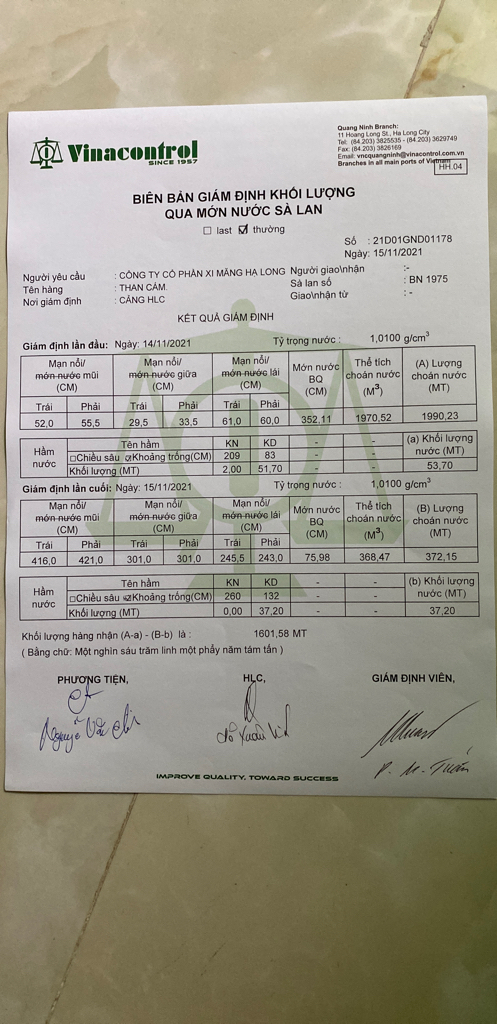 Quang Ninh Branch:
11 Hoang Long St., Ha Long City
Tel: (84.203) 3825535 - (84.203) 3629749
Fax: (84.203) 3826169
Email: vncquangninh@vinacontrol.com.vn
Branches in all main ports of Vietnam
HH.04
Vinacontrol
SINCE 1957
BIÊN BẢN GIÁM ĐỊNH KHỐI LƯỢNG
QUA MỚN NƯỚC SÀ LAN
last thường
Số : 21D01GND01178
Ngày: 15/11/2021
Người yêu cầu : CÔNG TY CỔ PHẦN XI MĂNG HẠ LONG Người giao\nhận :-
Tên hàng : THAN CÁM. Sà lan số : BN 1975
Nơi giám định : CẢNG HLC Giao\nhận từ : -
KẾT QUẢ GIÁM ĐỊNH
Giám định lần đầu: Ngày: 14/11/2021 Tỷ trọng nước : 1,0100 g/cm3
Mạn nổi/ Mạn nổi/ Mạn nổi/ Mớn nước Thể tích (A) Lượng
mớn nước mũi mớn nước giữa mớn nước lái BQ choán nước choán nước
(CM) (CM) (CM) (CM) (M3) (MT)
Trái Phải Trái Phải Trái Phải
52,0 55,5 29,5 33,5 61,0 60,0 352,11 1970,52 1990,23
Hầm nước Tên hầm KN KD - - (a) Khối lượng nước (MT)
□Chiều sâu ☑Khoảng trống(CM) 209 83 - -
Khối lượng (MT) 2,00 51,70 - - 53,70
Giám định lần cuối: Ngày: 15/11/2021 Tỷ trọng nước : 1,0100 g/cm3
Mạn nổi/ Mạn nổi/ Mạn nổi/ Mớn nước Thể tích (B) Lượng
mớn nước mũi mớn nước giữa mớn nước lái BQ choán nước choán nước
(CM) (CM) (CM) (CM) (M3) (MT)
Trái Phải Trái Phải Trái Phải
416,0 421,0 301,0 301,0 245,5 243,0 75,98 368,47 372,15
Hầm nước Tên hầm KN KD - - (b) Khối lượng nước (MT)
□Chiều sâu ☑Khoảng trống(CM) 260 132 - -
Khối lượng (MT) 0,00 37,20 - - 37,20
Khối lượng hàng nhận (A-a) - (B-b) là : 1601,58 MT
( Bằng chữ: Một nghìn sáu trăm linh một phẩy năm tám tấn )
PHƯƠNG TIỆN, HLC, GIÁM ĐỊNH VIÊN,
Nguyễn Văn Đỗ Xuân
P. M. Tuấn
IMPROVE QUALITY, TOWARD SUCCESS